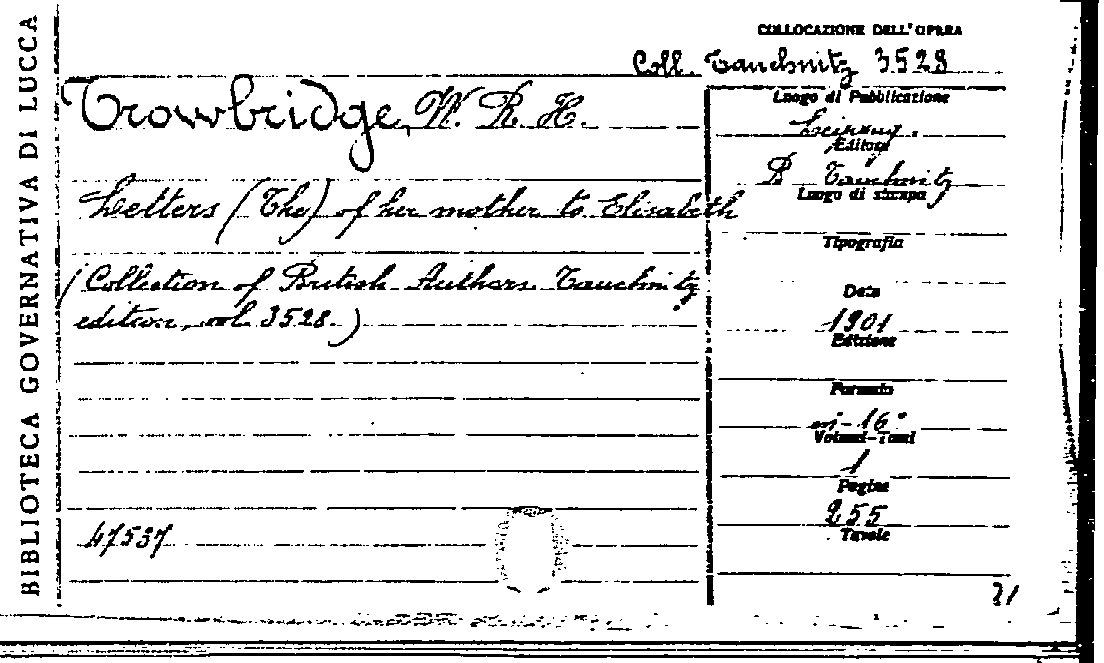 BIBLIOTECA GOVERNATIVA DI LUCCA
COLLOCAZIONE DELL'OPERA
Coll. Tauchnitz 3528
Trowbridge, W. R. H.
Letters (The) of her mother to Elisabeth
(Collection of British Authors Tauchnitz
edition, vol. 3528.)
47537
Luogo di Pubblicazione
Leipzig.
Editore
B Tauchnitz
Luogo di stampa
Tipografia
Data
1901
Edizione
Formato
in-16°
Volumi-Tomi
1
Pagine
255
Tavole